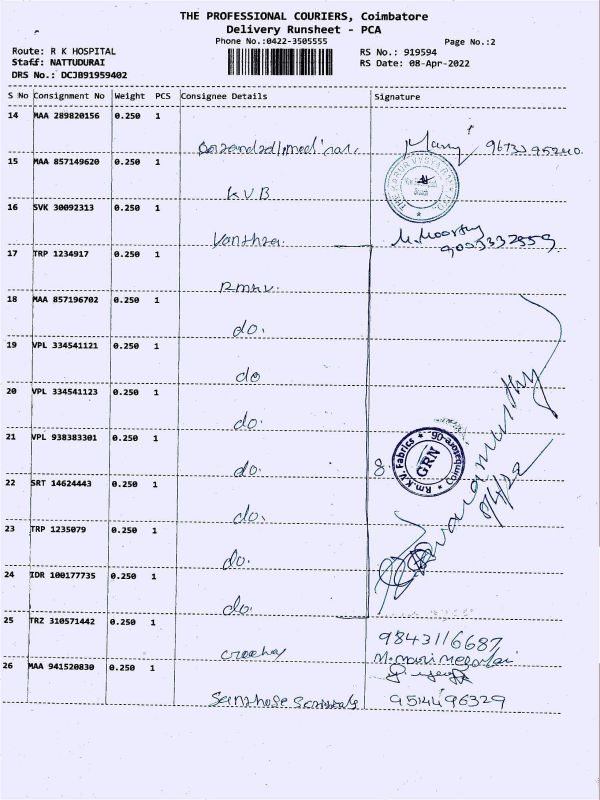 THE PROFESSIONAL COURIERS, Coimbatore
Delivery Runsheet - PCA
Phone No.:0422-3505555
Page No.:2
Route: R K HOSPITAL
RS No.: 919594
Staff: NATTUDURAI
RS Date: 08-Apr-2022
DRS No.: DCJB91959402
S No Consignment No Weight PCS Consignee Details Signature
14 MAA 289820156 0.250 1
15 MAA 857149620 0.250 1
K.V.B
16 SVK 30092313 0.250 1
M. Moorthy
17 TRP 1234917 0.250 1
18 MAA 857196702 0.250 1
do.
19 VPL 334541121 0.250 1
do
20 VPL 334541123 0.250 1
do.
21 VPL 938383301 0.250 1
do. 8. Rm.K.V. Fabrics GRN
22 SRT 14624443 0.250 1
do. 8/4/22
23 TRP 1235079 0.250 1
do.
24 IDR 100177735 0.250 1
do.
25 TRZ 310571442 0.250 1
9843116687
26 MAA 941520830 0.250 1
9514496329